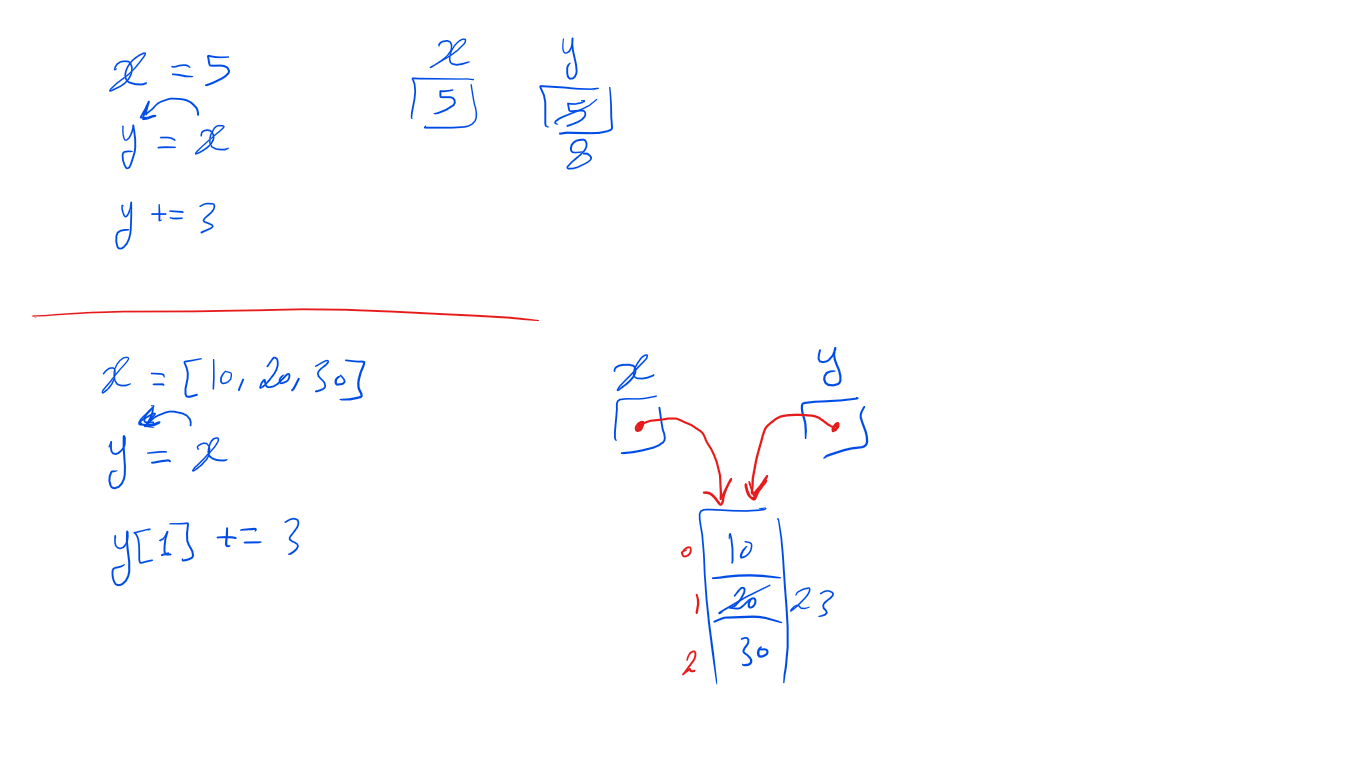 x = 5
y = x
y += 3
x y
5 5
8
x = [10, 20, 30]
y = x
y[1] += 3
x y
0 10
1 20 23
2 30